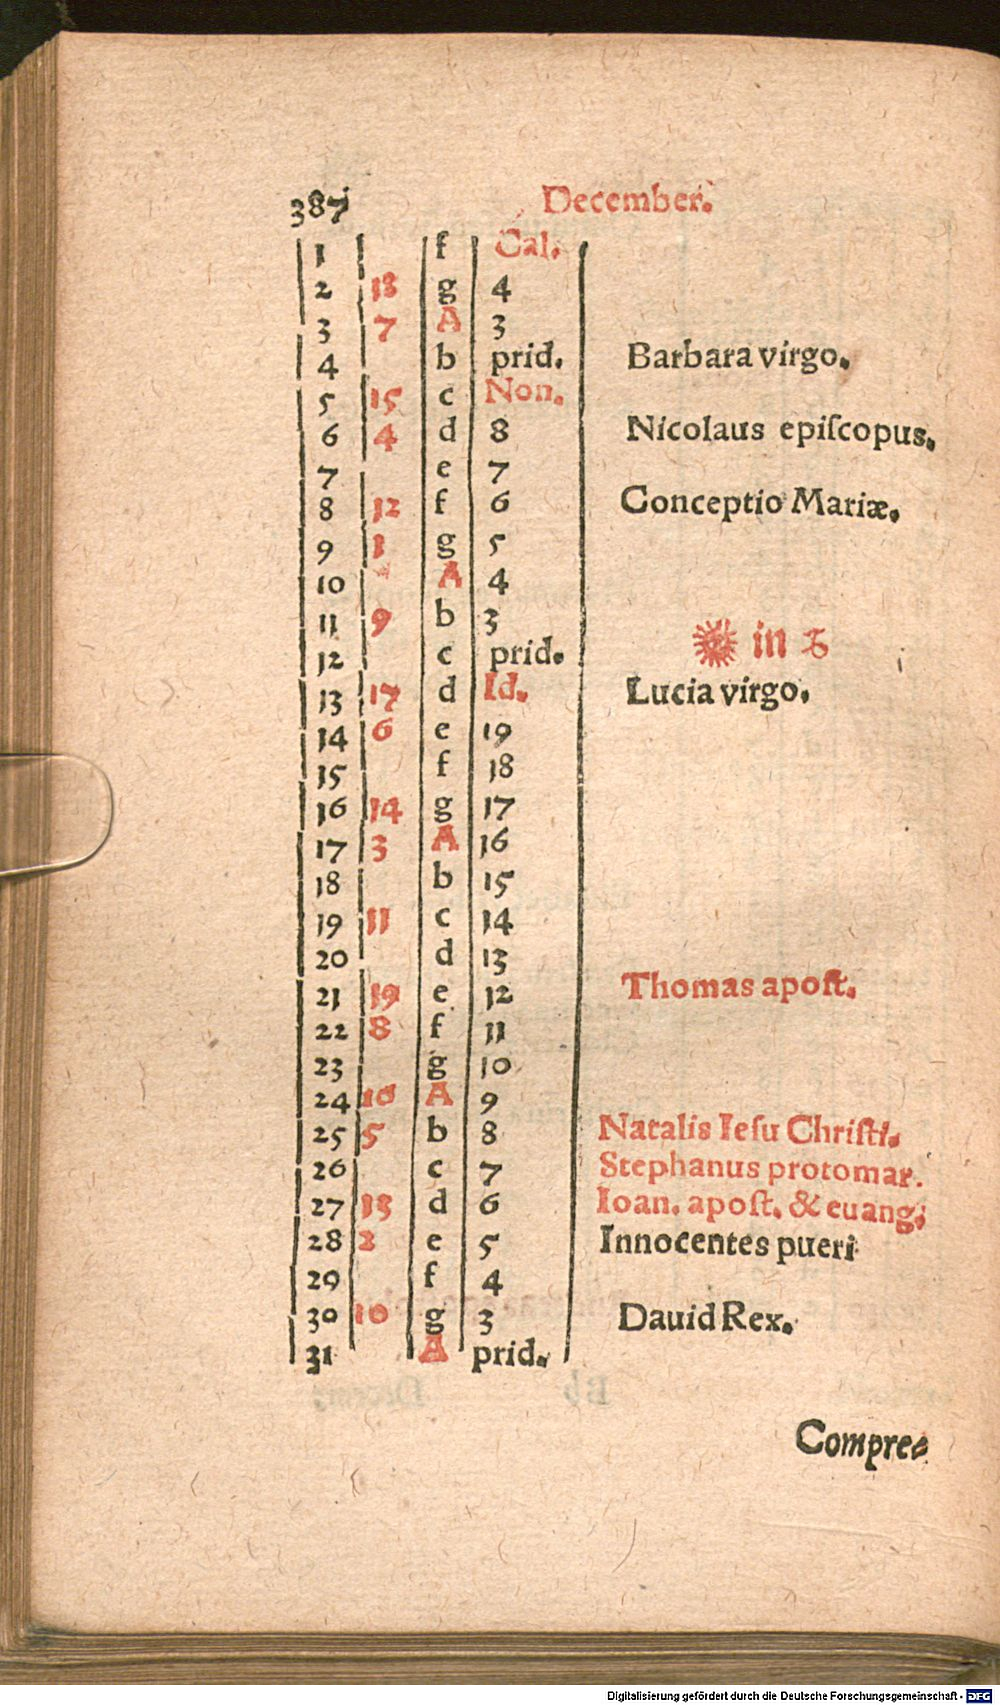 387
December.
1 f Cal.
2 13 g 4
3 7 A 3
4 b prid. Barbara virgo.
5 15 c Non.
6 4 d 8 Nicolaus epiſcopus.
7 e 7
8 12 f 6 Conceptio Mariæ.
9 1 g 5
10 A 4
11 9 b 3
☀ in ♑
12 c prid.
13 17 d Id. Lucia virgo.
14 6 e 19
15 f 18
16 14 g 17
17 3 A 16
18 b 15
19 11 c 14
20 d 13
21 19 e 12 Thomas apoſt.
22 8 f 11
23 g 10
24 16 A 9
25 5 b 8 Natalis Ieſu Chriſti.
26 c 7 Stephanus protomar.
27 13 d 6 Ioan. apoſt. & euang.
28 2 e 5 Innocentes pueri
29 f 4
30 10 g 3 Dauid Rex.
31 A prid.
Compre-
Digitalisierung gefördert durch die Deutsche Forschungsgemeinschaft - DFG